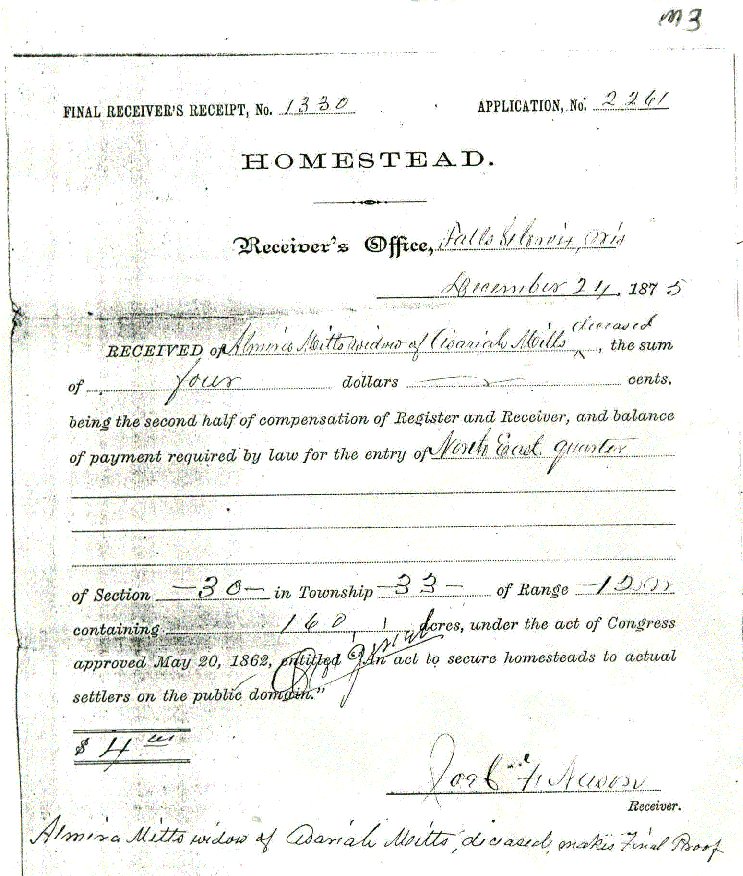 M3
FINAL RECEIVER'S RECEIPT, No. 1330 APPLICATION, No. 2261
HOMESTEAD.
Receiver's Office, Falls St Croix, Wis
December 24, 1875
deceased
RECEIVED of Almira Mitts widow of Azariah Mitts, the sum
of four dollars cents,
being the second half of compensation of Register and Receiver, and balance
of payment required by law for the entry of North East quarter
of Section -30- in Township -33- of Range -15
containing 160 acres, under the act of Congress
approved May 20, 1862, entitled "An act to secure homesteads to actual
settlers on the public domain."
$ 4
Receiver.
Almira Mitts widow of Azariah Mitts, deceased, makes Final Proof